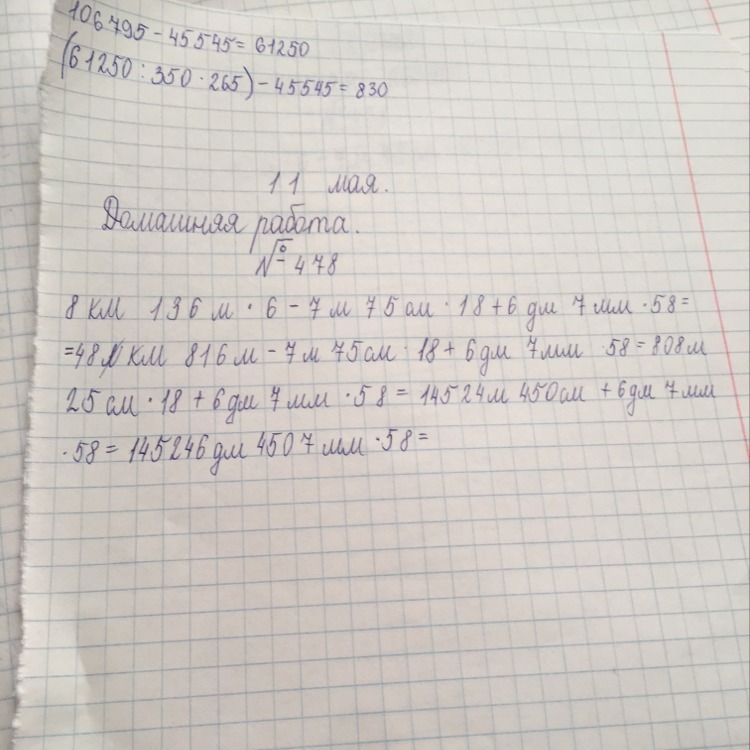 106795 - 45545 = 61250
(61250 : 350 · 265) - 45545 = 830
11 мая.
Домашняя работа.
№ 478
8 км 136 м · 6 - 7 м 75 см · 18 + 6 дм 7 мм · 58 =
= 48 км 816 м - 7 м 75 см · 18 + 6 дм 7 мм · 58 = 808 м
25 см · 18 + 6 дм 7 мм · 58 = 14524 м 450 см + 6 дм 7 мм
· 58 = 145246 дм 4507 мм · 58 =